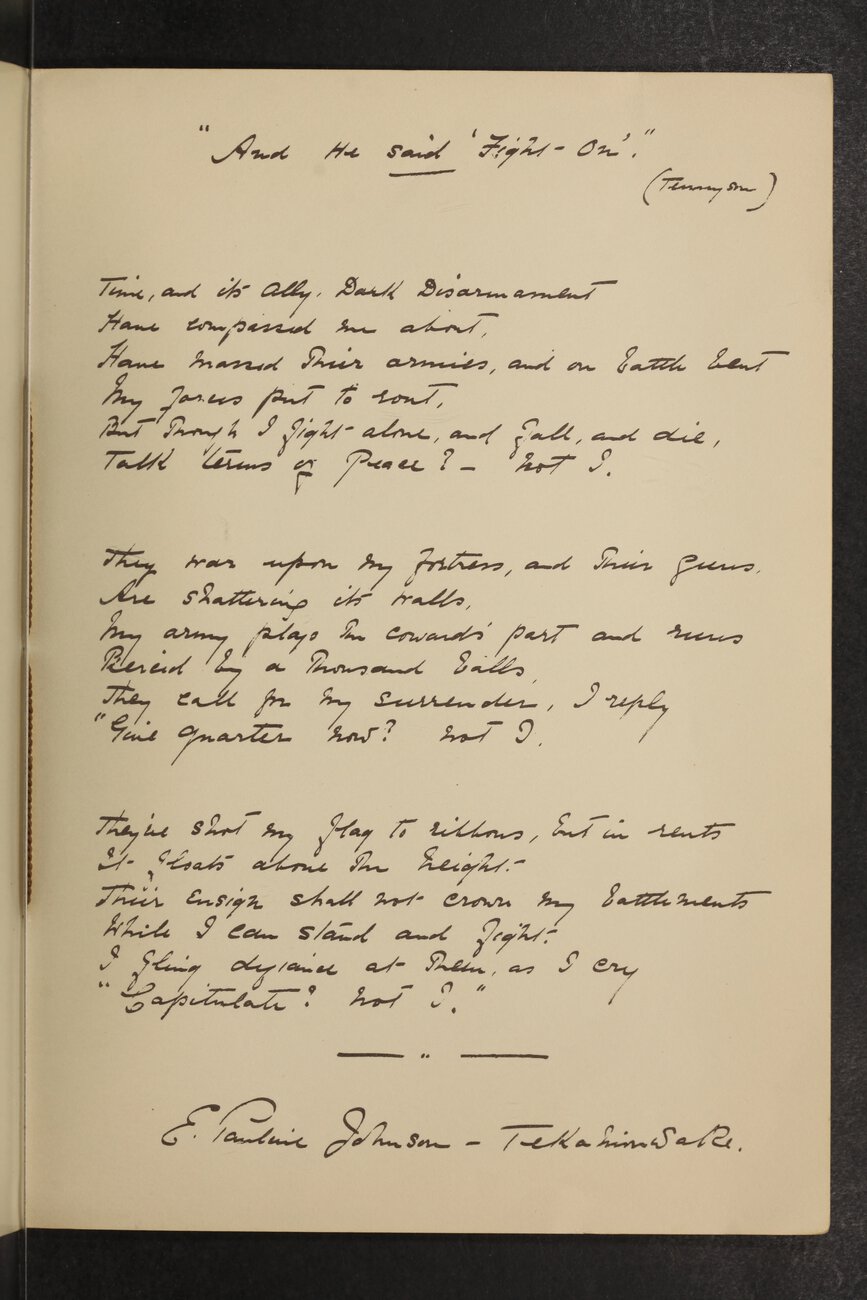 "And He said 'Fight - On'."
(Tennyson)
Time, and its Ally, Dark Disarmament
Have compassed me about,
Have massed Their armies, and on battle bent
My forces put to rout,
But Though I fight alone, and fall, and die,
Talk terms of Peace? - Not I.
They war upon my fortress, and Their guns,
Are shattering its walls,
My army plays The cowards' part and runs
Pierc'd by a Thousand balls,
They call for my surrender, I reply
"Give quarter now? Not I.
They've shot my flag to ribbons, but in rents
It floats above The height -
Their ensign shall not crown my battlements
While I can stand and fight.
I fling defiance at Them, as I cry
"Capitulate? Not I."
E. Pauline Johnson - Tekahionwake.